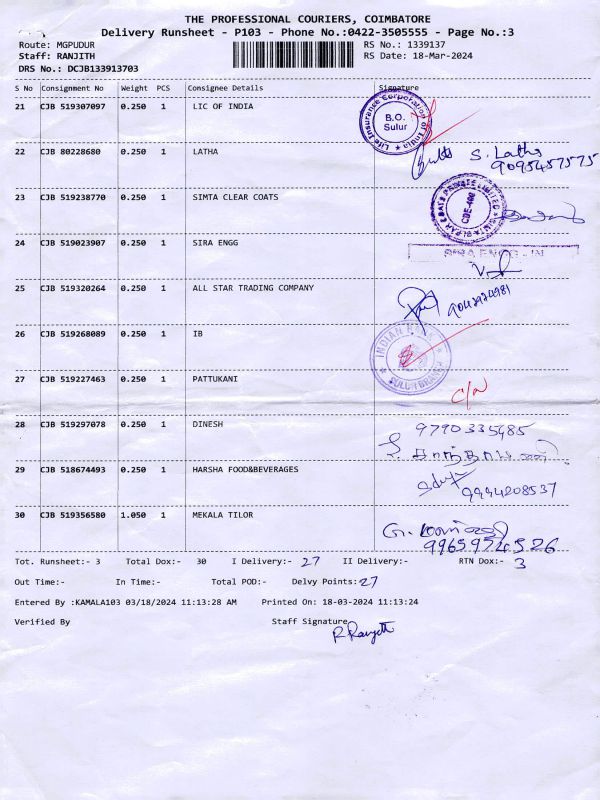 THE PROFESSIONAL COURIERS, COIMBATORE
Delivery Runsheet - P103 - Phone No.:0422-3505555 - Page No.:3
Route: MGPUDUR RS No.: 1339137
Staff: RANJITH RS Date: 18-Mar-2024
DRS No.: DCJB133913703
S No Consignment No Weight PCS Consignee Details Signature
21 CJB 519307097 0.250 1 LIC OF INDIA
Life Insurance Corporation of India
B.O.
Sulur
22 CJB 80228680 0.250 1 LATHA
S. Latha
9095457575
23 CJB 519238770 0.250 1 SIMTA CLEAR COATS
24 CJB 519023907 0.250 1 SIRA ENGG
25 CJB 519320264 0.250 1 ALL STAR TRADING COMPANY
9042924981
26 CJB 519268089 0.250 1 IB
INDIAN BANK
SULUR BRANCH
27 CJB 519227463 0.250 1 PATTUKANI
28 CJB 519297078 0.250 1 DINESH
9790335485
29 CJB 518674493 0.250 1 HARSHA FOOD&BEVERAGES
9994208537
30 CJB 519356580 1.050 1 MEKALA TILOR
9965974526
Tot. Runsheet:- 3 Total Dox:- 30 I Delivery:- 27 II Delivery:- RTN Dox:- 3
Out Time:- In Time:- Total POD:- Delvy Points: 27
Entered By :KAMALA103 03/18/2024 11:13:28 AM Printed On: 18-03-2024 11:13:24
Verified By Staff Signature
R Ranjith